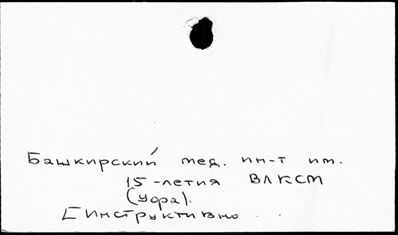 Башкирский мед. ин-т им.
15-летия ВЛКСМ
(Уфа).
[Инструктивно ..